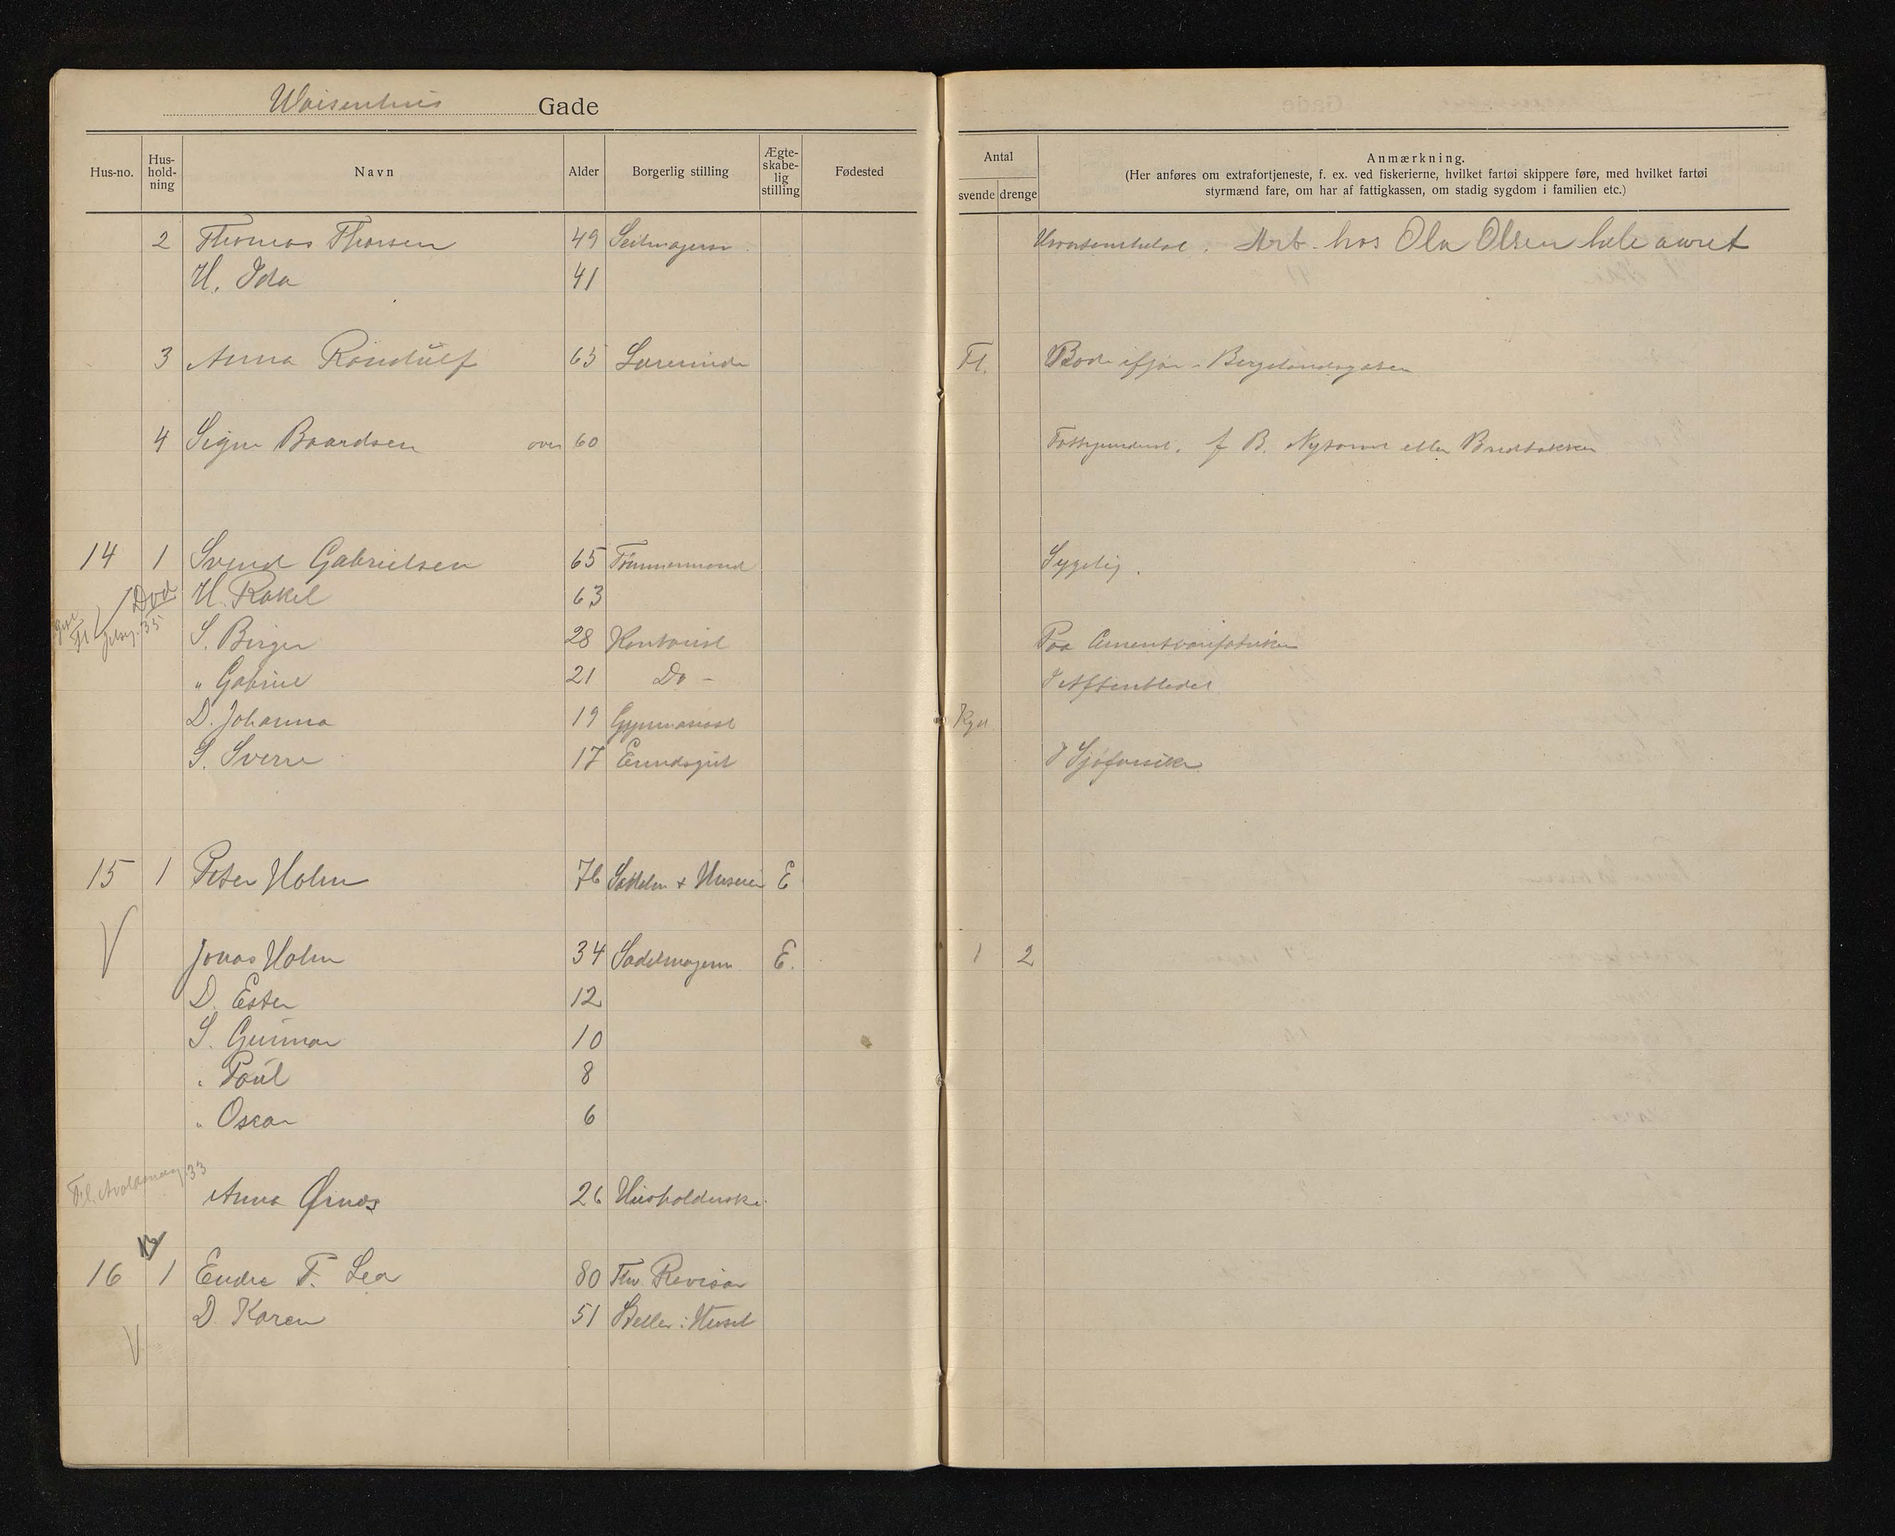 Waisenhus Gade
Hus-no. Hus-hold-ning Navn Alder Borgerlig stilling Ægte-skabe-lig stilling Fødested
Antal
svende drenge
Anmærkning.
(Her anføres om extrafortjeneste, f. ex. ved fiskerierne, hvilket fartøi skippere føre, med hvilket fartøi
styrmænd fare, om har af fattigkassen, om stadig sygdom i familien etc.)
2 Thomas Thorsen 49 Seilmagersv. Arb. hos Ola Olsen hele aaret
H. Ida 41
3 Anna Rondulf 65 Lærerinde Fl. Bode ifjor - Bergelandsgaten
4 Signe Baardsen over 60 f B. Nytorvet eller Bredbakken
14 1 Svend Gabrielsen 65 Tømmermand Sygelig.
Død H. Rakel 63
Fl 35
S. Birger 28 Kontorist Paa Cementvarefabriken
" Gabriel 21 Do - I Aftenbladet
D. Johanna 19 Gymnasiast
S. Sverre 17 Erindsgut
15 1 Peter Holm 76 Sadelm + Huseier E
Jonas Holm 34 Sadelmager E. 1 2
D. Ester 12
S. Gunnar 10
" Paul 8
" Oscar 6
Fl. 33
Anna Ørnes 26 Husholderske
16 1 Endre F. Lea 80 Fhv. Revisor
D Karen 51 Steller i Huset